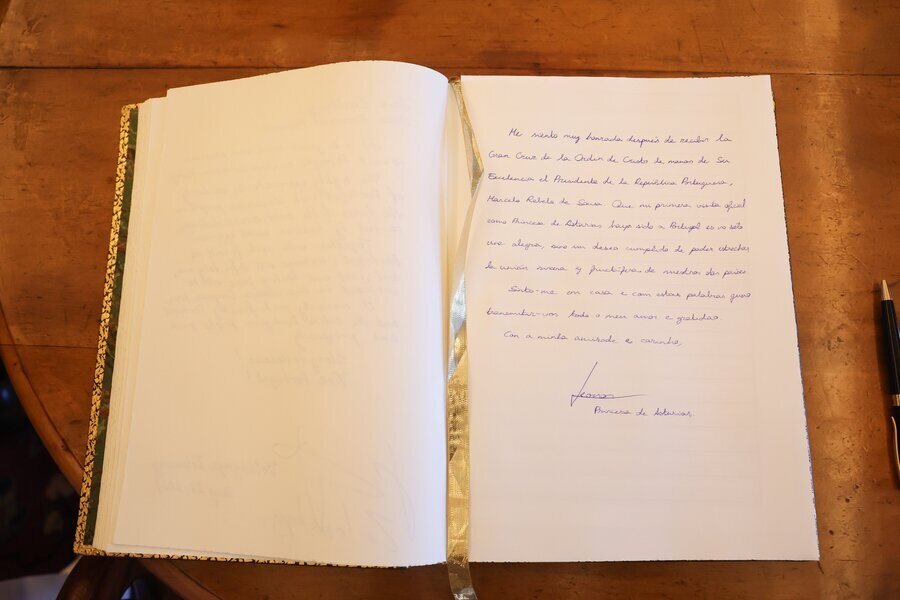 Me siento muy honrada después de recibir la
Gran Cruz de la Orden de Cristo de manos de Su
Excelencia el Presidente de la República Portuguesa,
Marcelo Rebelo de Sousa. Que mi primera visita oficial
como Princesa de Asturias haya sido a Portugal es no sólo
una alegría, sino un deseo cumplido de poder estrechar
la unión sincera y fructífera de nuestros dos países
Sinto-me em casa e com estas palavras quero
transmitir-vos todo o meu amor e gratidão.
Con a minha amizade e carinho,
Leonor
Princesa de Asturias